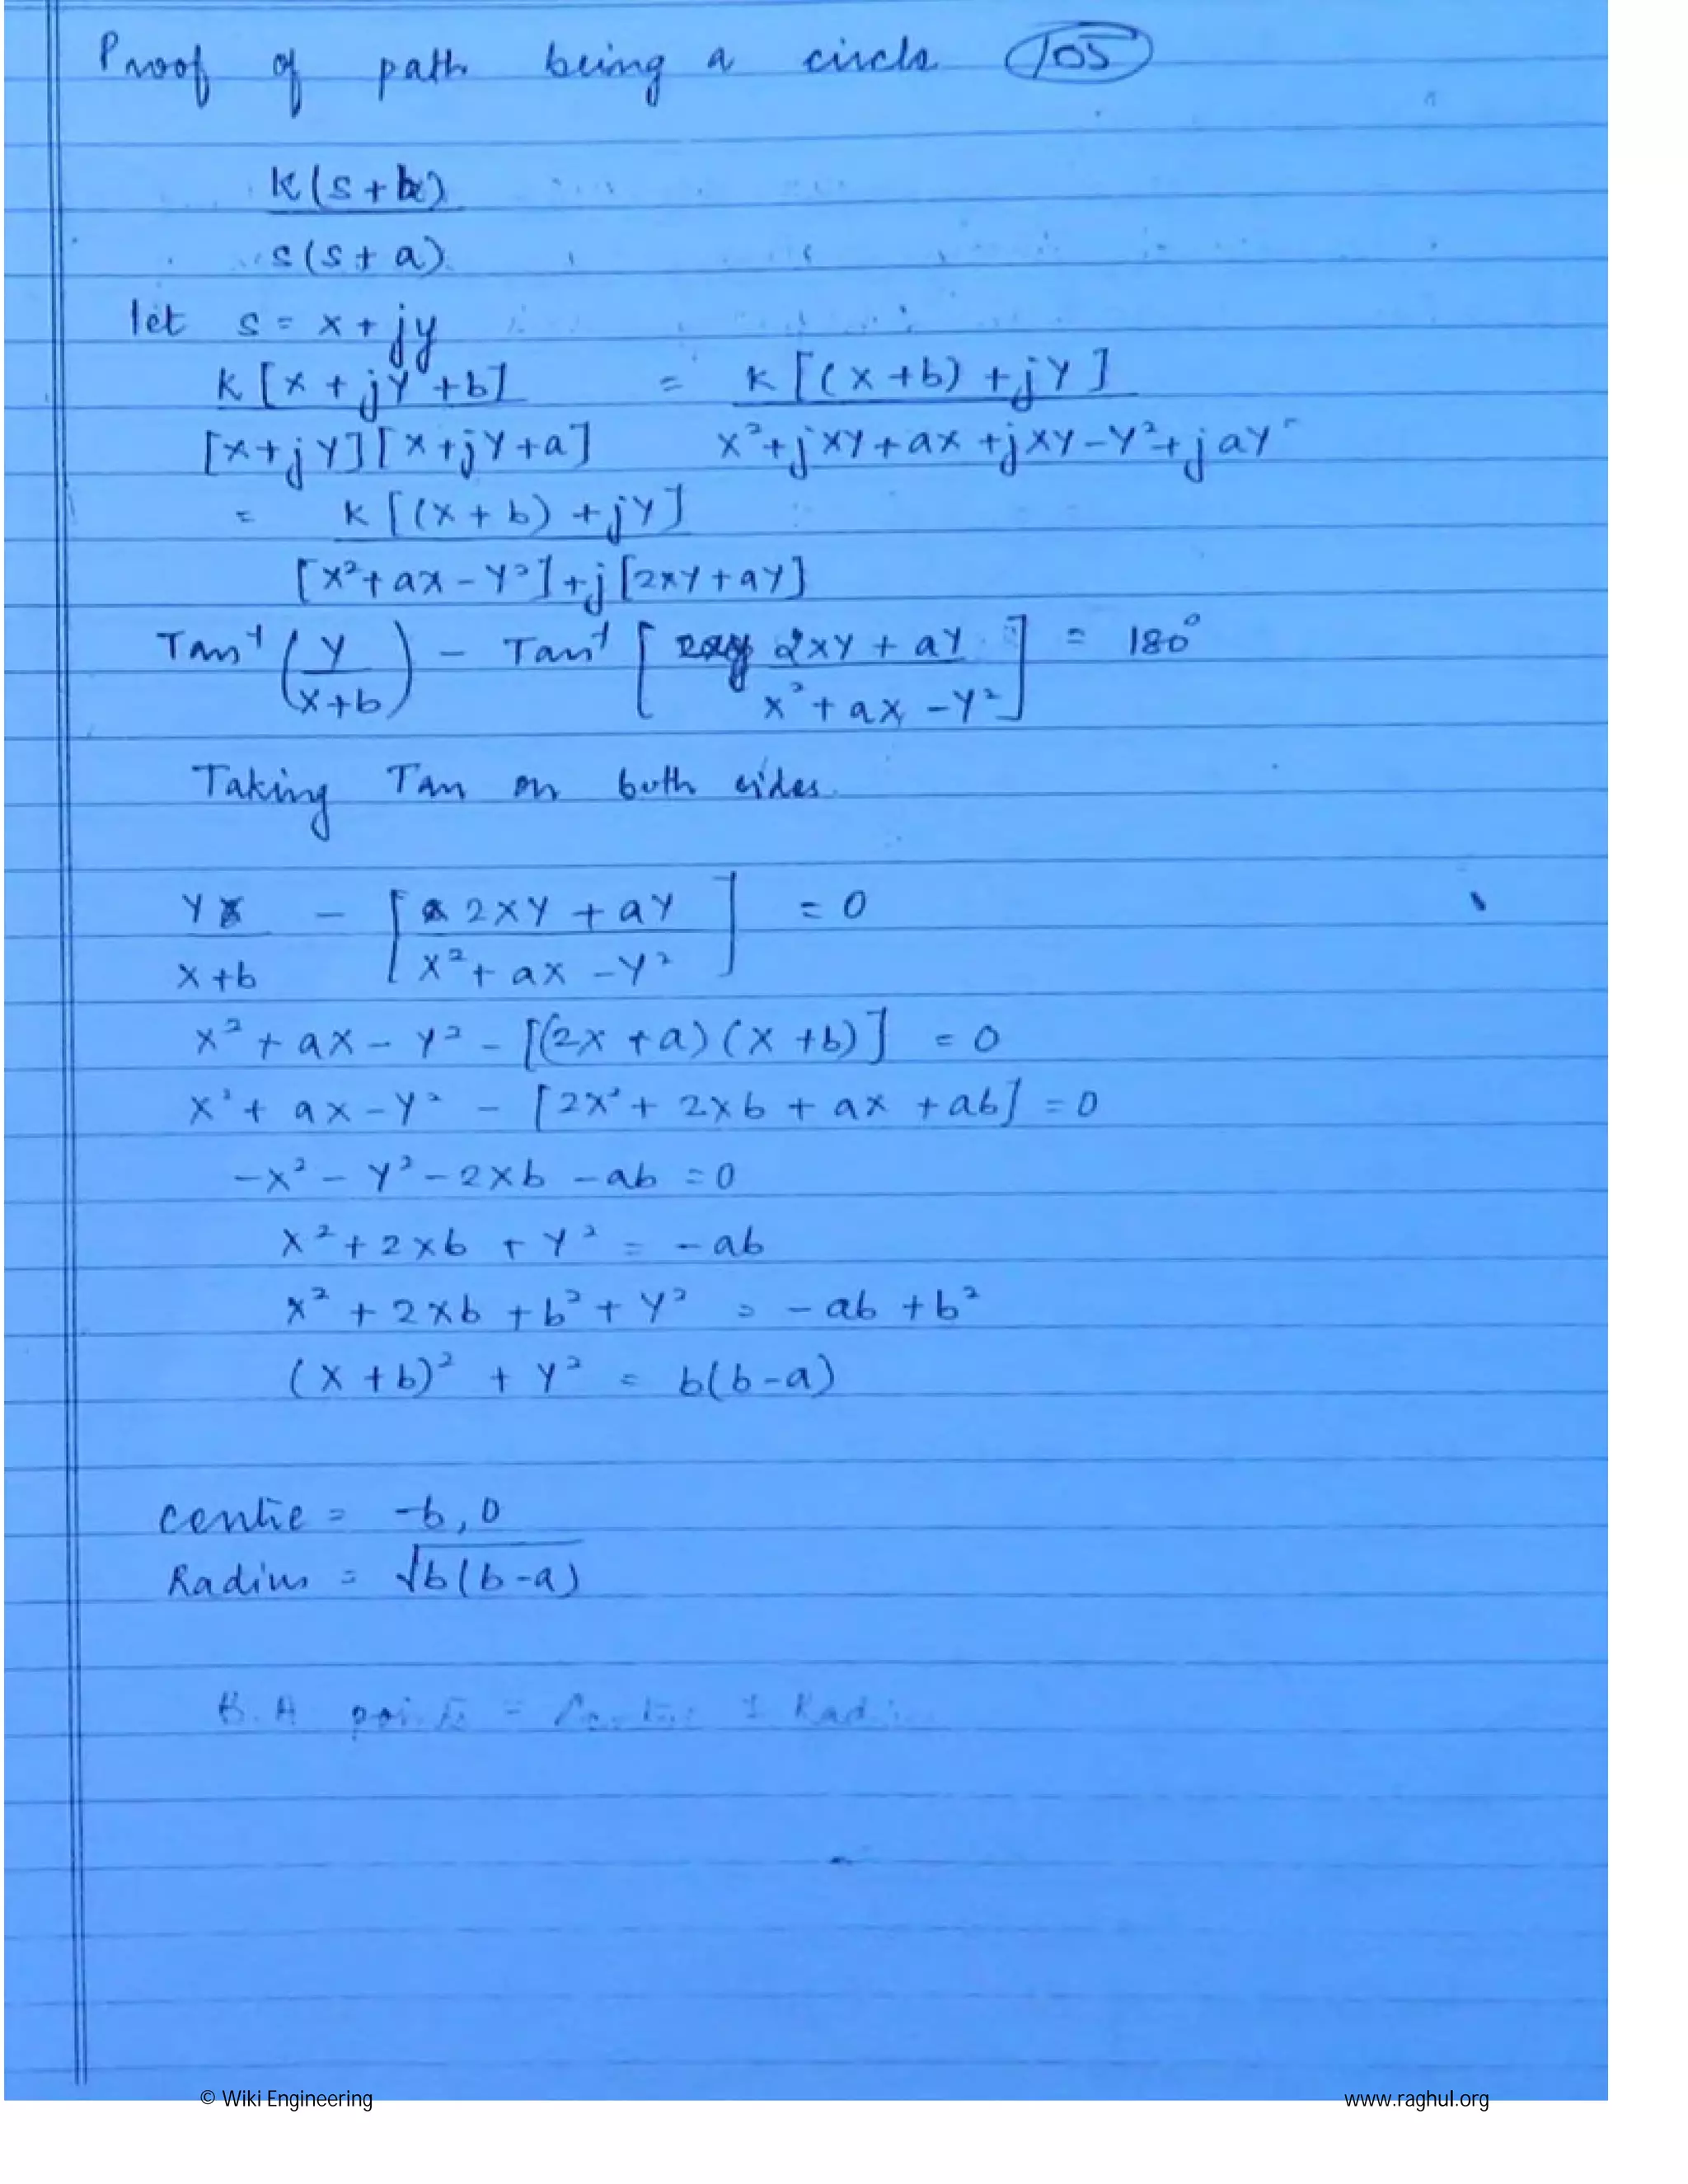 Proof of path being a circle 105
K(s+b)
s(s+a)
let s = x + jy
K[x + jY + b] = K[(x+b) + jY]
[x+jY][x+jY+a] x²+jxy+ax+jxy-Y²+jaY
= K[(x+b) + jY]
[x²+ax-Y²]+j[2xY+aY]
Tan⁻¹(Y/x+b) - Tan⁻¹[2xY + aY / x²+ax-Y²] = 180°
Taking Tan on both sides.
Y - [2xY + aY] = 0
x+b [x²+ax-Y²]
x²+ax-Y²-[(2x+a)(x+b)] = 0
x²+ax-Y² - [2x²+2xb+ax+ab] = 0
-x²-Y²-2xb-ab = 0
x²+2xb+Y² = -ab
x²+2xb+b²+Y² = -ab+b²
(x+b)²+Y² = b(b-a)
Centre = -b, 0
Radius = √b(b-a)
B.A points = Centre ± Radi
© Wiki Engineering www.raghul.org